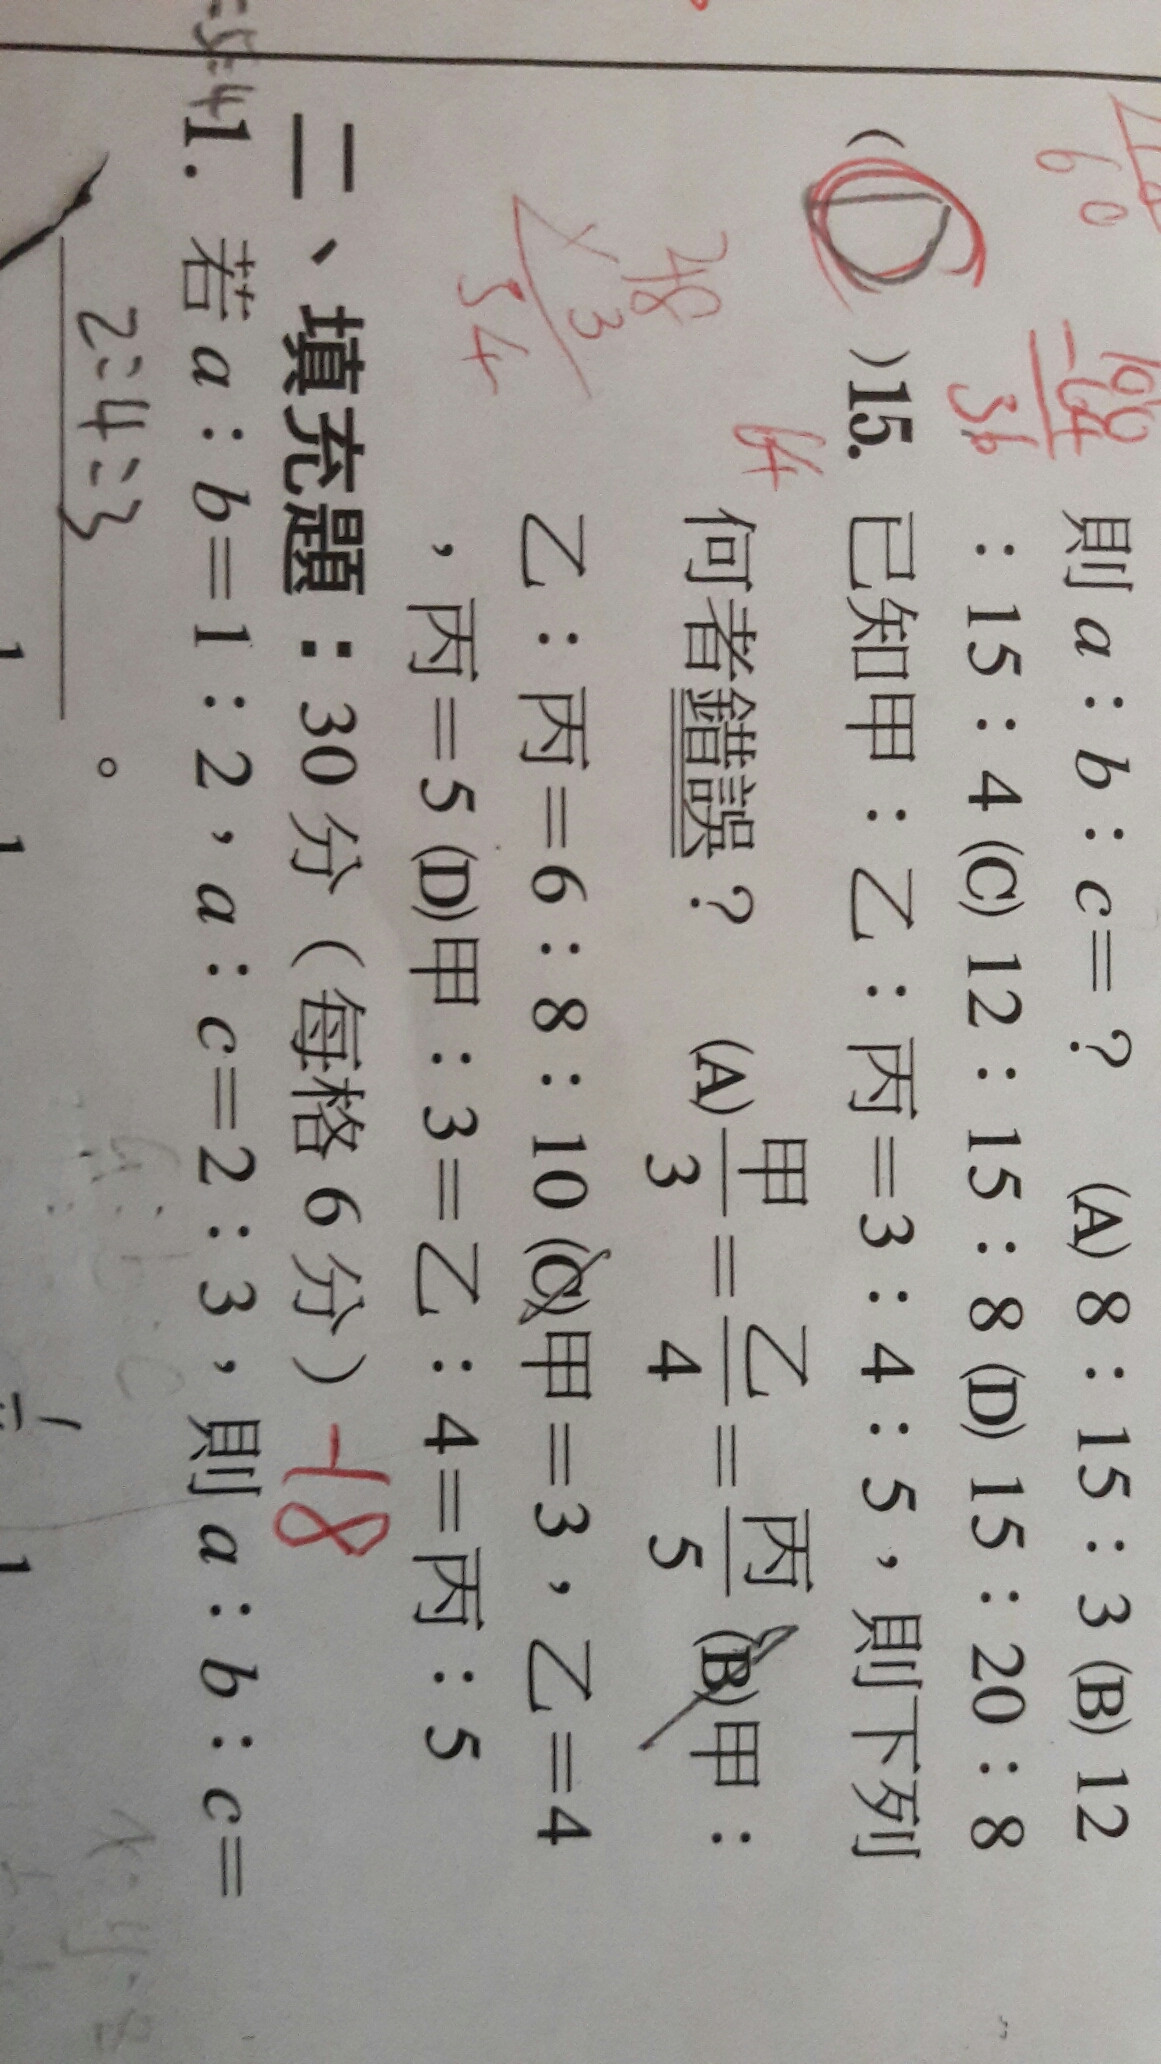 則 a：b：c＝？ (A) 8：15：3 (B) 12
：15：4 (C) 12：15：8 (D) 15：20：8
100
-64
36
60
( D )15. 已知甲：乙：丙＝3：4：5，則下列
何者錯誤？ (A) 甲/3＝乙/4＝丙/5 (B)甲：
乙：丙＝6：8：10 (C)甲＝3，乙＝4
，丙＝5 (D)甲：3＝乙：4＝丙：5
64
18
×3
54
二、填充題：30 分（每格 6 分） -18
1. 若 a：b＝1：2，a：c＝2：3，則 a：b：c＝
2:4:3 。